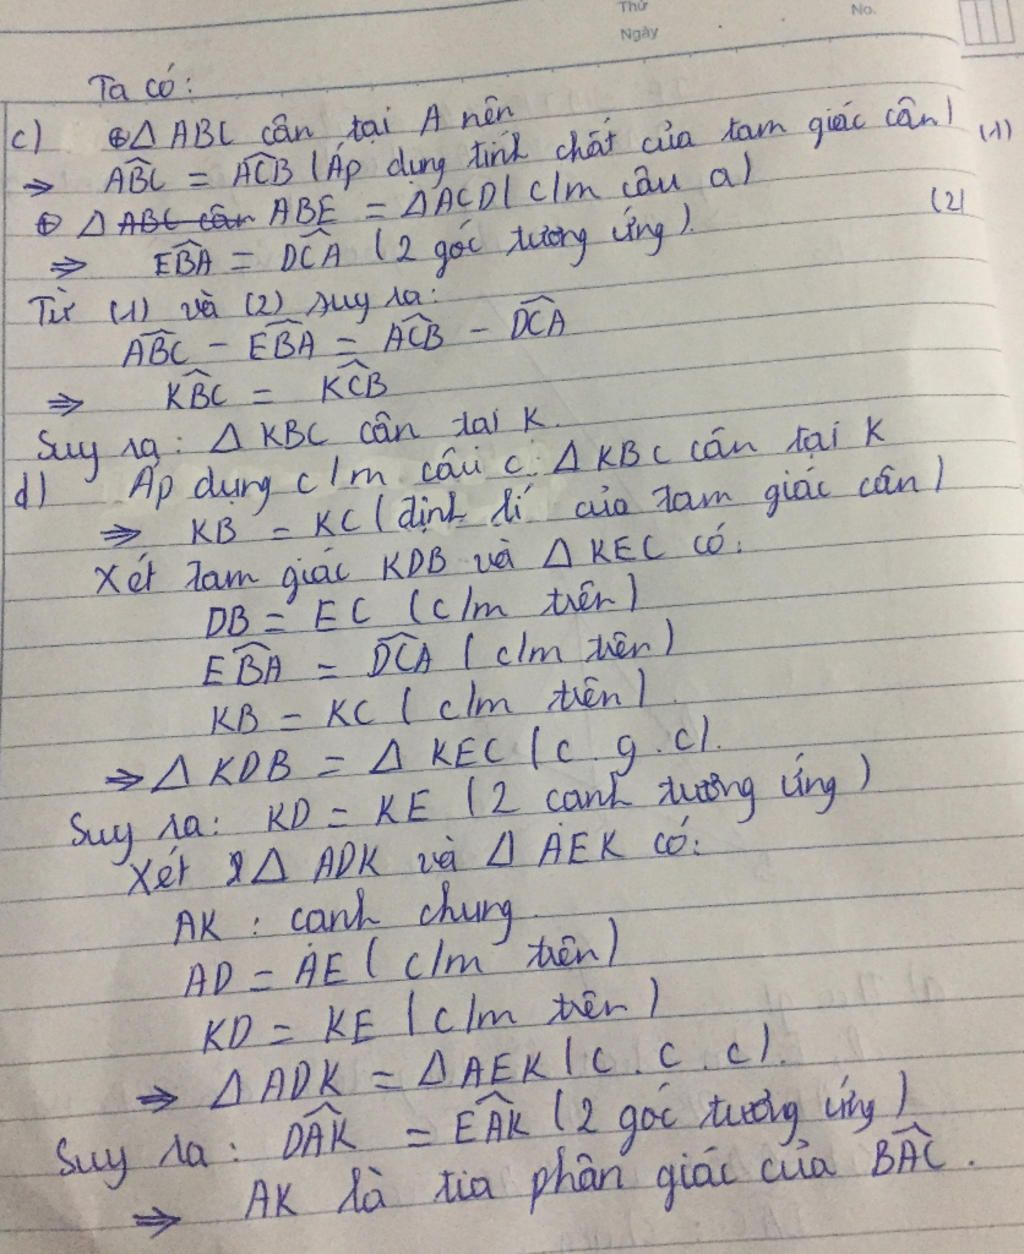 Thứ
No.
Ngày
Ta có:
c) ⊕ Δ ABC cân tại A nên
⇒ ABC = ACB (Áp dụng tính chất của tam giác cân) (1)
⊕ Δ ABC cân ABE = ΔACD ( c/m câu a)
⇒ EBA = DCA (2 góc tương ứng). (2)
Từ (1) và (2) suy ra:
ABC - EBA = ACB - DCA
⇒ KBC = KCB
Suy ra: Δ KBC cân tại K.
d) Áp dụng c/m câu c: Δ KBC cân tại K
⇒ KB = KC (định lí của tam giác cân)
Xét tam giác KDB và Δ KEC có:
DB = EC (c/m trên)
EBA = DCA (c/m trên)
KB = KC (c/m trên)
⇒ Δ KDB = Δ KEC (c.g.c).
Suy ra: KD = KE (2 cạnh tương ứng)
Xét 2Δ ADK và Δ AEK có:
AK: cạnh chung
AD = AE (c/m trên)
KD = KE (c/m trên)
⇒ Δ ADK = Δ AEK (c.c.c).
Suy ra: DAK = EAK (2 góc tương ứng)
⇒ AK là tia phân giác của BAC.